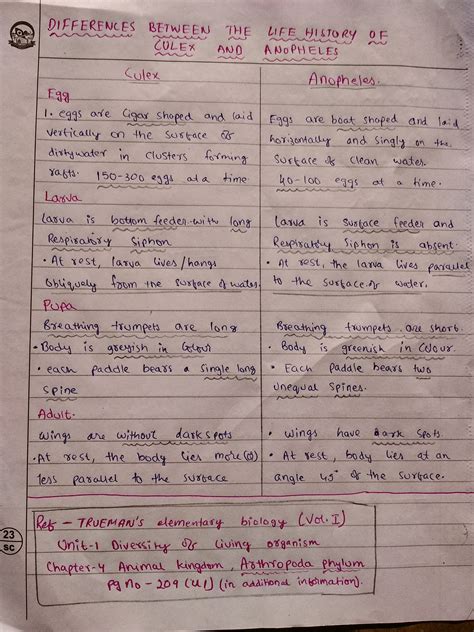 DIFFERENCES BETWEEN THE LIFE HISTORY OF
CULEX AND ANOPHELES
Culex
Anopheles.
Egg
1. eggs are Cigar shaped and laid
vertically on the surface of
dirtywater in clusters forming
rafts. 150-300 eggs at a time.
Eggs are boat shaped and laid
horizontally and singly on the
Surface of clean water.
40-100 eggs at a time.
Larva
Larva is bottom feeder with long
Respiratory Siphon
• At rest, larva lives/hangs
obliquely from the surface of water.
Larva is surface feeder and
Respiratory Siphon is absent.
• At rest, the larva lives parallel
to the surface of water.
Pupa
Breathing trumpets are long
• Body is greyish in Colour
• each paddle bears a single long
spine
Breathing trumpets are short.
• Body is greenish in Colour.
• Each paddle bears two
unequal Spines.
Adult.
Wings are without dark spots
• At rest, the body lies more (or)
less parallel to the surface
• Wings have dark spots.
• At rest, body lies at an
angle 45° of the surface.
Ref - TRUEMAN'S elementary biology (Vol. I)
Unit-1 Diversity of living organism
Chapter-4 Animal kingdom, Arthropoda phylum
Pg No - 209 (4.1) (in additional information).
23
SC